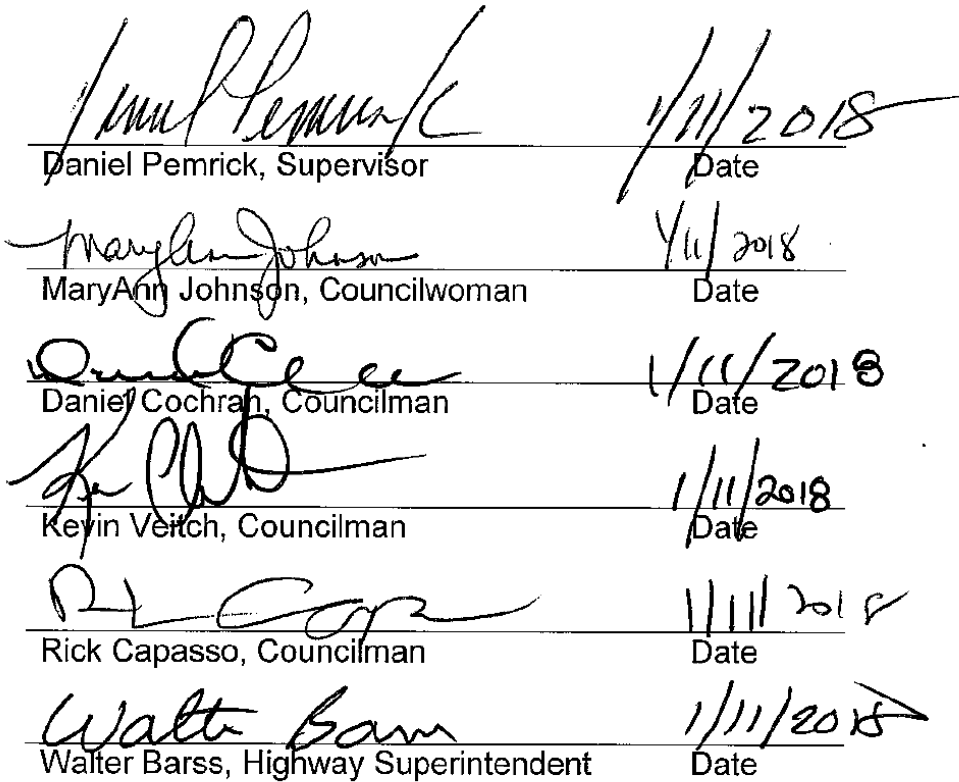 Daniel Pemrick 1/11/2018
Daniel Pemrick, Supervisor Date
MaryAnn Johnson 1/11/2018
MaryAnn Johnson, Councilwoman Date
1/11/2018
Daniel Cochran, Councilman Date
1/11/2018
Kevin Veitch, Councilman Date
1/11/2018
Rick Capasso, Councilman Date
Walter Barss 1/11/2018
Walter Barss, Highway Superintendent Date